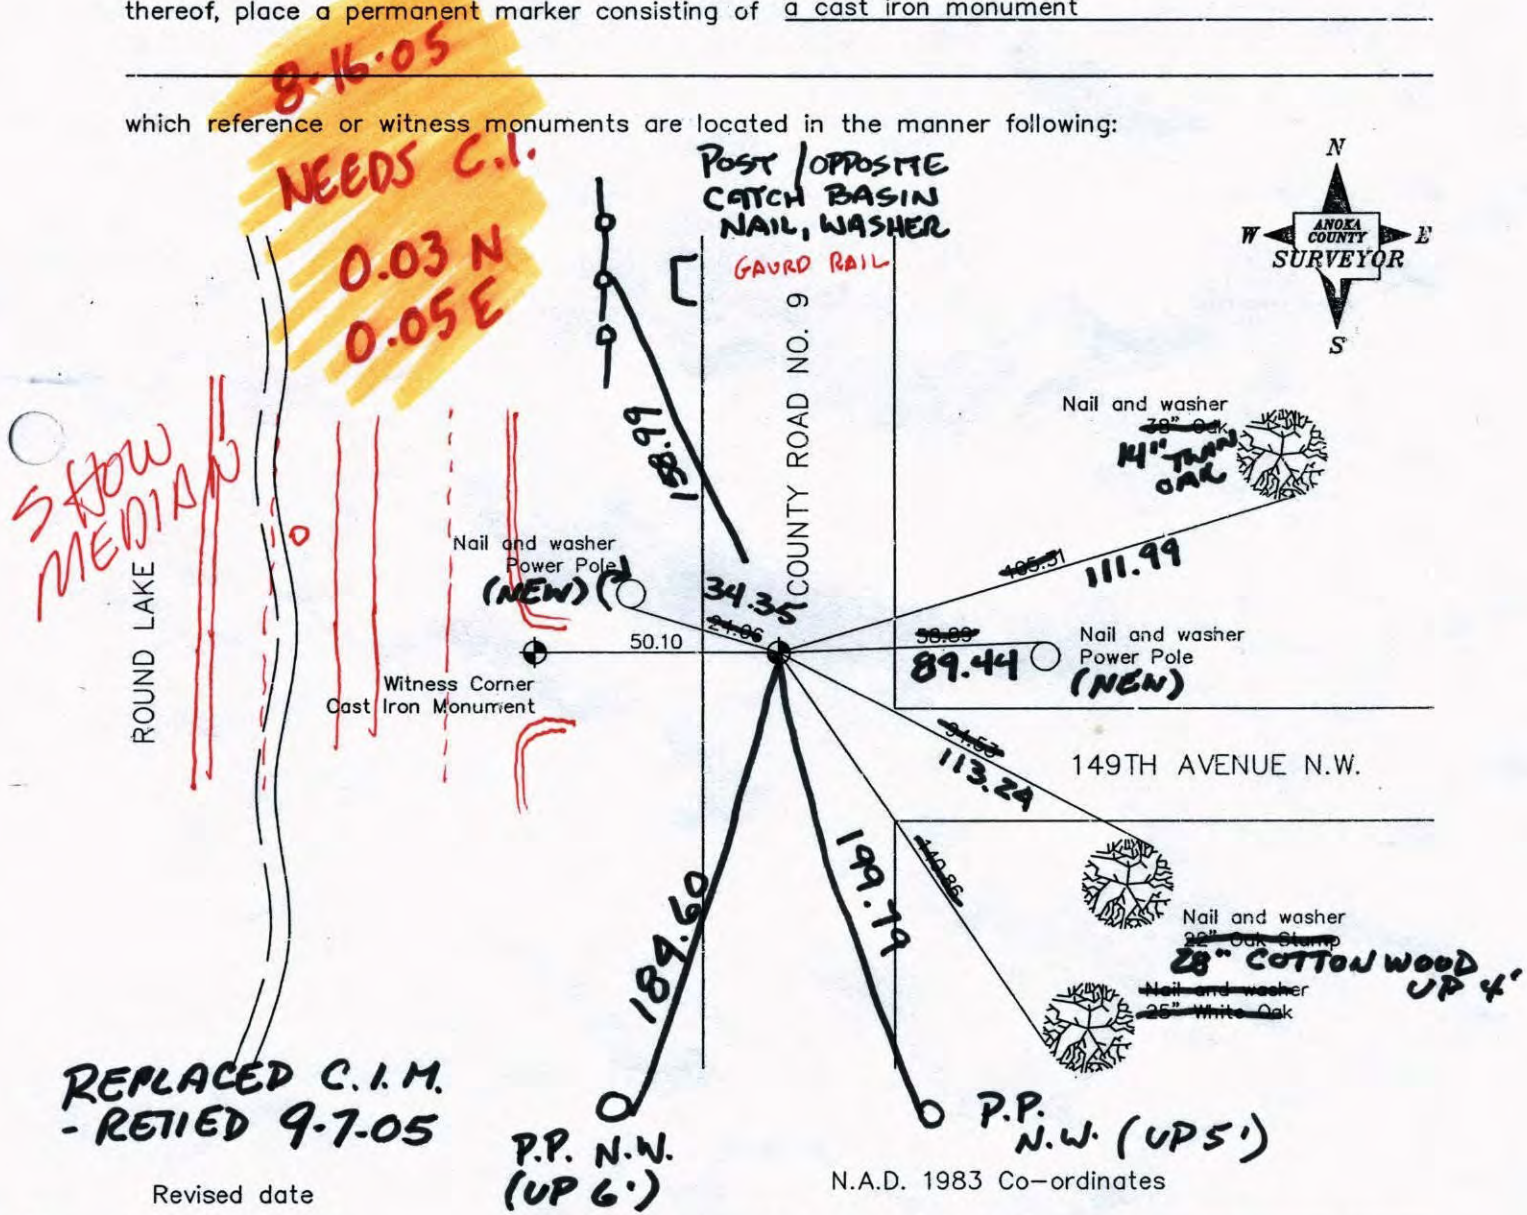 thereof, place a permanent marker consisting of a cast iron monument
8-16-05
which reference or witness monuments are located in the manner following:
NEEDS C.I.
0.03 N
0.05 E
POST / OPPOSITE
CATCH BASIN
NAIL, WASHER
GAURD RAIL
N
W
ANOKA
COUNTY
E
SURVEYOR
S
COUNTY ROAD NO. 9
158.99
SHOW
MEDIAN
ROUND LAKE
Nail and washer
38" Oak
14" TWIN
OAK
105.51
111.99
Nail and washer
Power Pole
(NEW)
34.35
24.06
50.10
Witness Corner
Cast Iron Monument
58.89
89.44
Nail and washer
Power Pole
(NEW)
94.53
113.24
149TH AVENUE N.W.
140.86
189.60
199.79
Nail and washer
22" Oak Stump
28" COTTONWOOD
UP 4'
Nail and washer
25" White Oak
REPLACED C.I.M.
- RETIED 9-7-05
P.P. N.W.
(UP 6')
P.P.
N.W. (UP 5')
Revised date
N.A.D. 1983 Co-ordinates